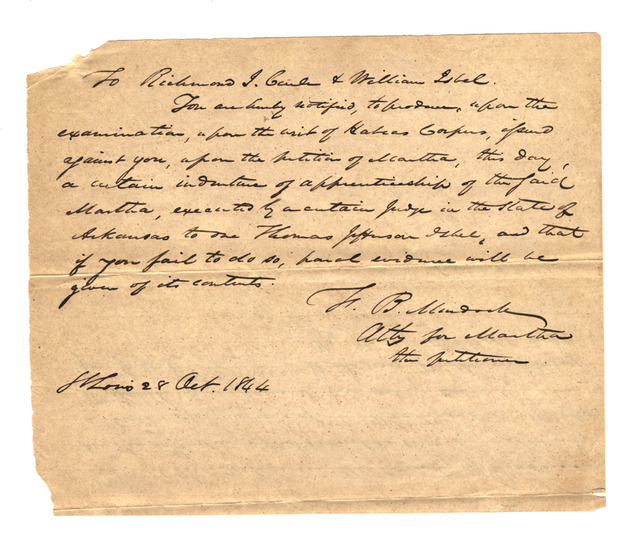 To Richmond J. Curle & William Isbel.
You are hereby notified, to produce, upon the
examination, upon the writ of Habeas Corpus, issued
against you, upon the petition of Martha, this day,
a certain indenture of apprenticeship of the said
Martha, executed by a certain Judge in the State of
Arkansas to one Thomas Jefferson Isbel, and that
if you fail to do so, parol evidence will be
given of its contents.
F. B. Murdock
Atty for Martha
the petitioner
St Louis 28 Oct. 1844